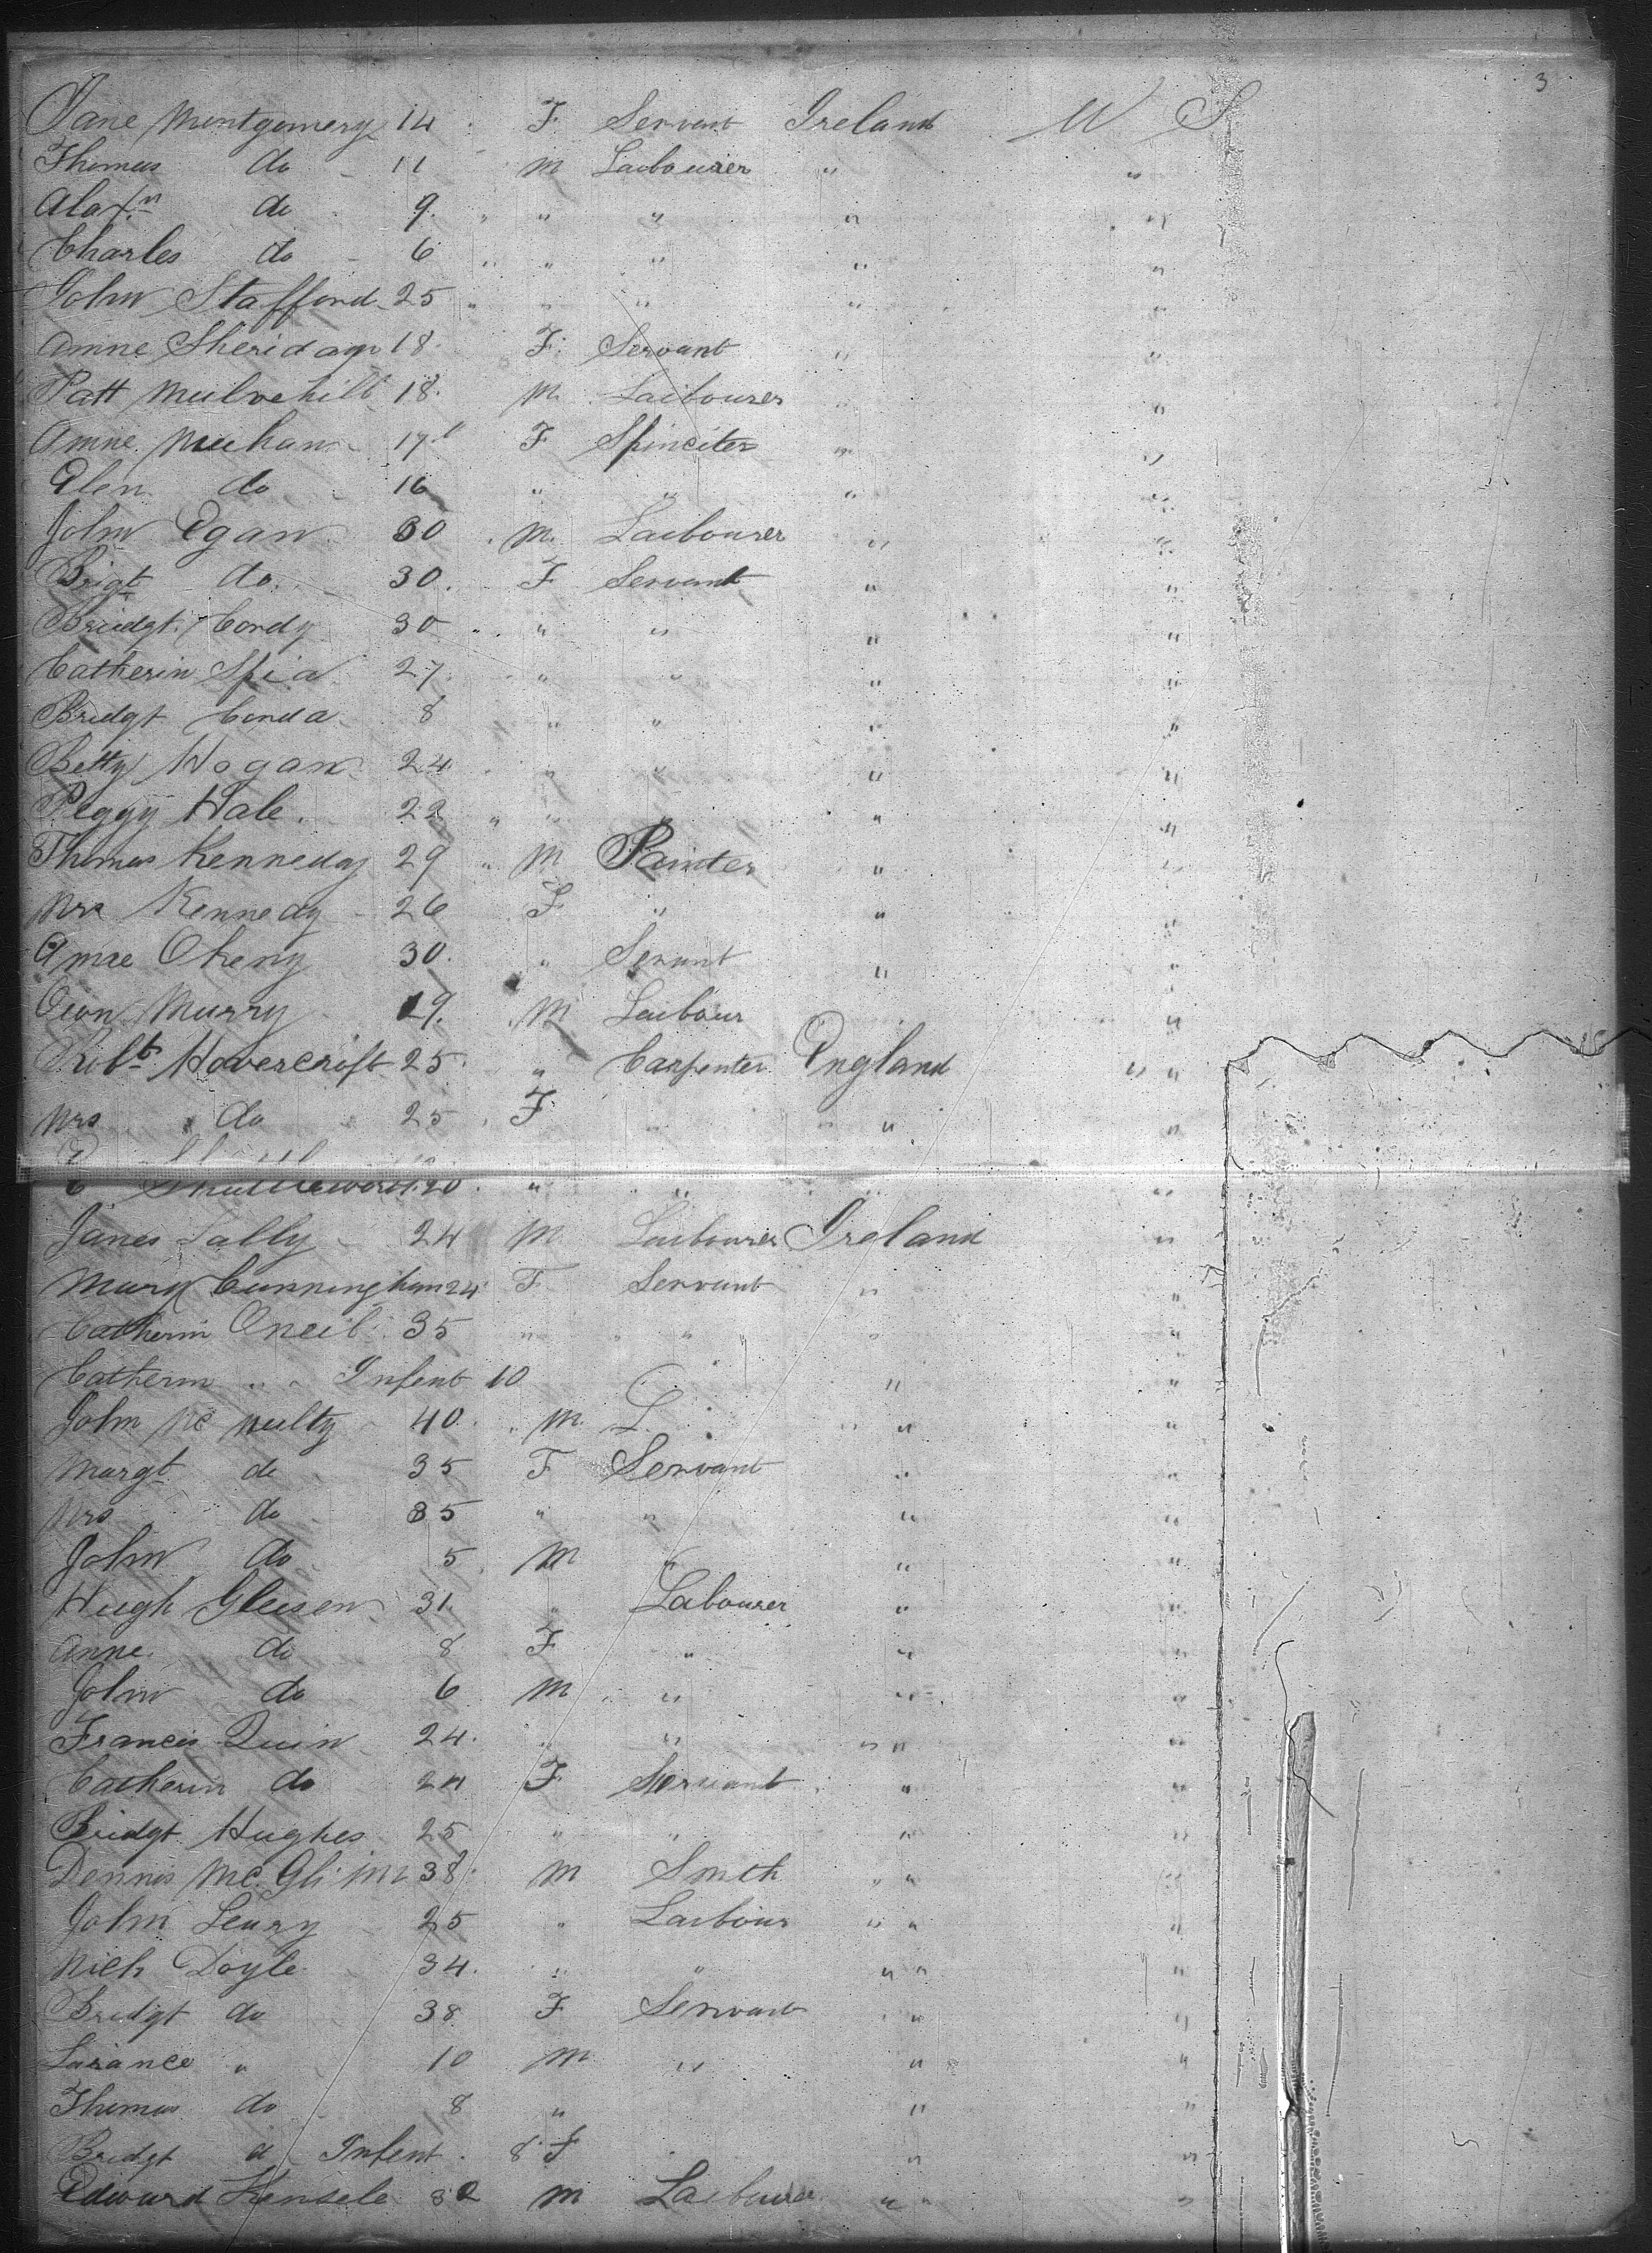 3
Jane Montgomery 14 F Servant Ireland U S
Thomas do 11 M Laibourer " "
Alaxn do 9 " " " " "
Charles do 6 " " " " "
John Stafford 25 " " " " "
Anne Sheridan 18 F Servant " "
Patt Mulvehill 18 M Laibourer " "
Anne Meehan 17 F Spinciter " "
Elen do 16 " " " "
John Egan 30 M Laibourer " "
Brigt do 30 F Servant " "
Bridgt Cordy 30 " " " "
Catherin Spia 27 " " " "
Bridgt Conda 8 " " " "
Betty Hogan 24 " " " "
Peggy Hale 22 " " " " "
Thomas Kennedy 29 " M Painter " "
Mrs Kennedy 26 F " " "
Anne Oheny 30 " Servant " "
Owen Murry 19 M Laibour "
Robt Havercroft 25 " Carpenter England " "
Mrs do 25 F " " " "
Shuttleworth 20 " " " "
James Lally 24 M Laibourer Ireland "
Mary Cunningham 24 F Servant " "
Catherin Oneil 35 " " " "
Catherin " Infent 10 " "
John Mc Nulty 40 " M L " " "
Margt do 35 F Servant " "
Mrs do 35 " " " "
John do 5 M " " "
Hugh Gleeson 31 " Labourer " "
Anne do 8 F " " "
John do 6 M " " "
Francis Quin 24 " " " " "
Catherin do 24 F Servant " "
Bridgt Hughes 25 " " " "
Dennis Mc Glinn 38 M Smith " " "
John Leary 25 " Laibour " " "
Nich Doyle 34 " " " " "
Bridgt do 38 F Servant " "
Larance " 10 M " " "
Thomas do 8 " " "
Bridgt d Infent 8 F " "
Edward Hensele 32 M Laibour " " "